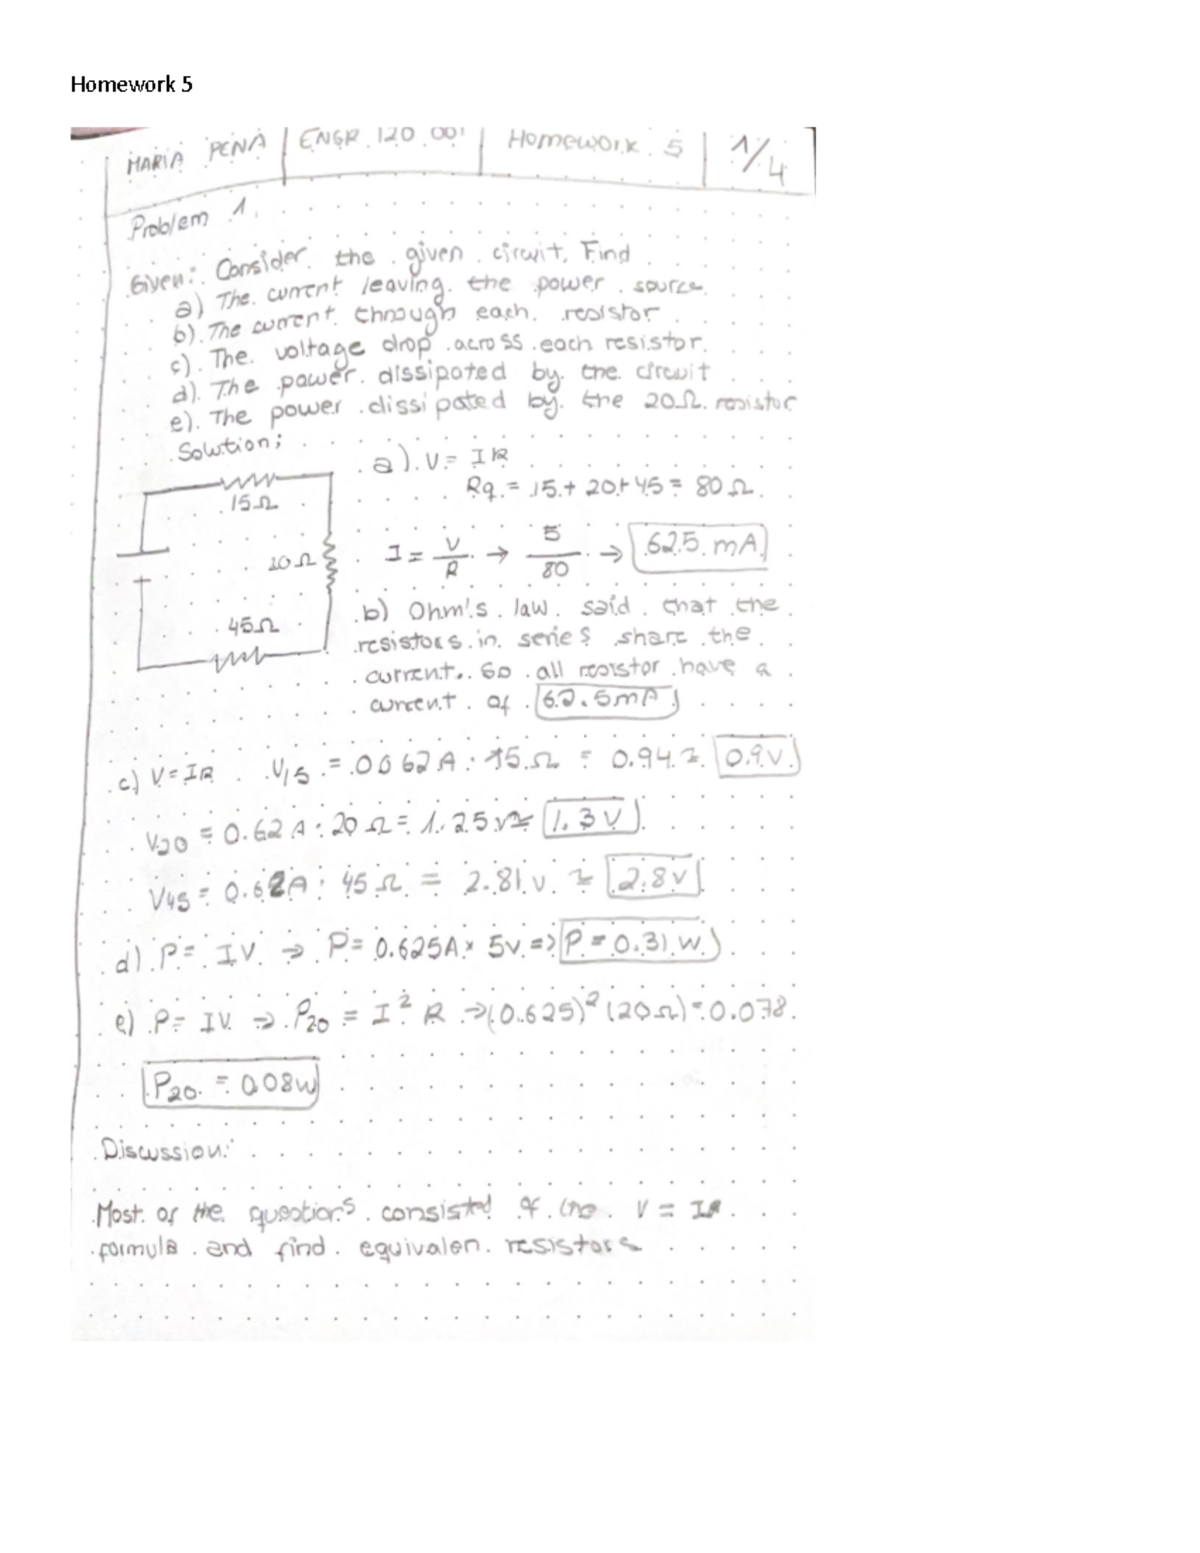 Homework 5
MARIA PENA ENGR 120 001 Homework 5 1/4
Problem 1.
Given: Consider the given circuit, Find
a) The current leaving the power source.
b). The current through each resistor
c). The voltage drop across each resistor.
d). The power dissipated by the circuit
e). The power dissipated by the 20Ω resistor
Solution;
a). V = IR
Rq = 15 + 20 + 45 = 80 Ω
15Ω
I = V/R → 5/80 → 62.5 mA
20Ω
b) Ohm's law said that the
45Ω
resistors in series share the
current. So all resistor have a
current of 62.5mA
c) V = IR V15 = .0062A · 15Ω = 0.94 ≃ 0.9V
V20 = 0.62A · 20Ω = 1.25V ≃ 1.3V
V45 = 0.62A · 45Ω = 2.81V ≃ 2.8V
d) P = IV → P = 0.625A × 5V => P = 0.31 W
e) P = IV → P20 = I² R → (0.625)² (20Ω) = 0.078
P20 = 0.08W
Discussion:
Most of the questions consisted of the V = IR
formula and find equivalen resistors